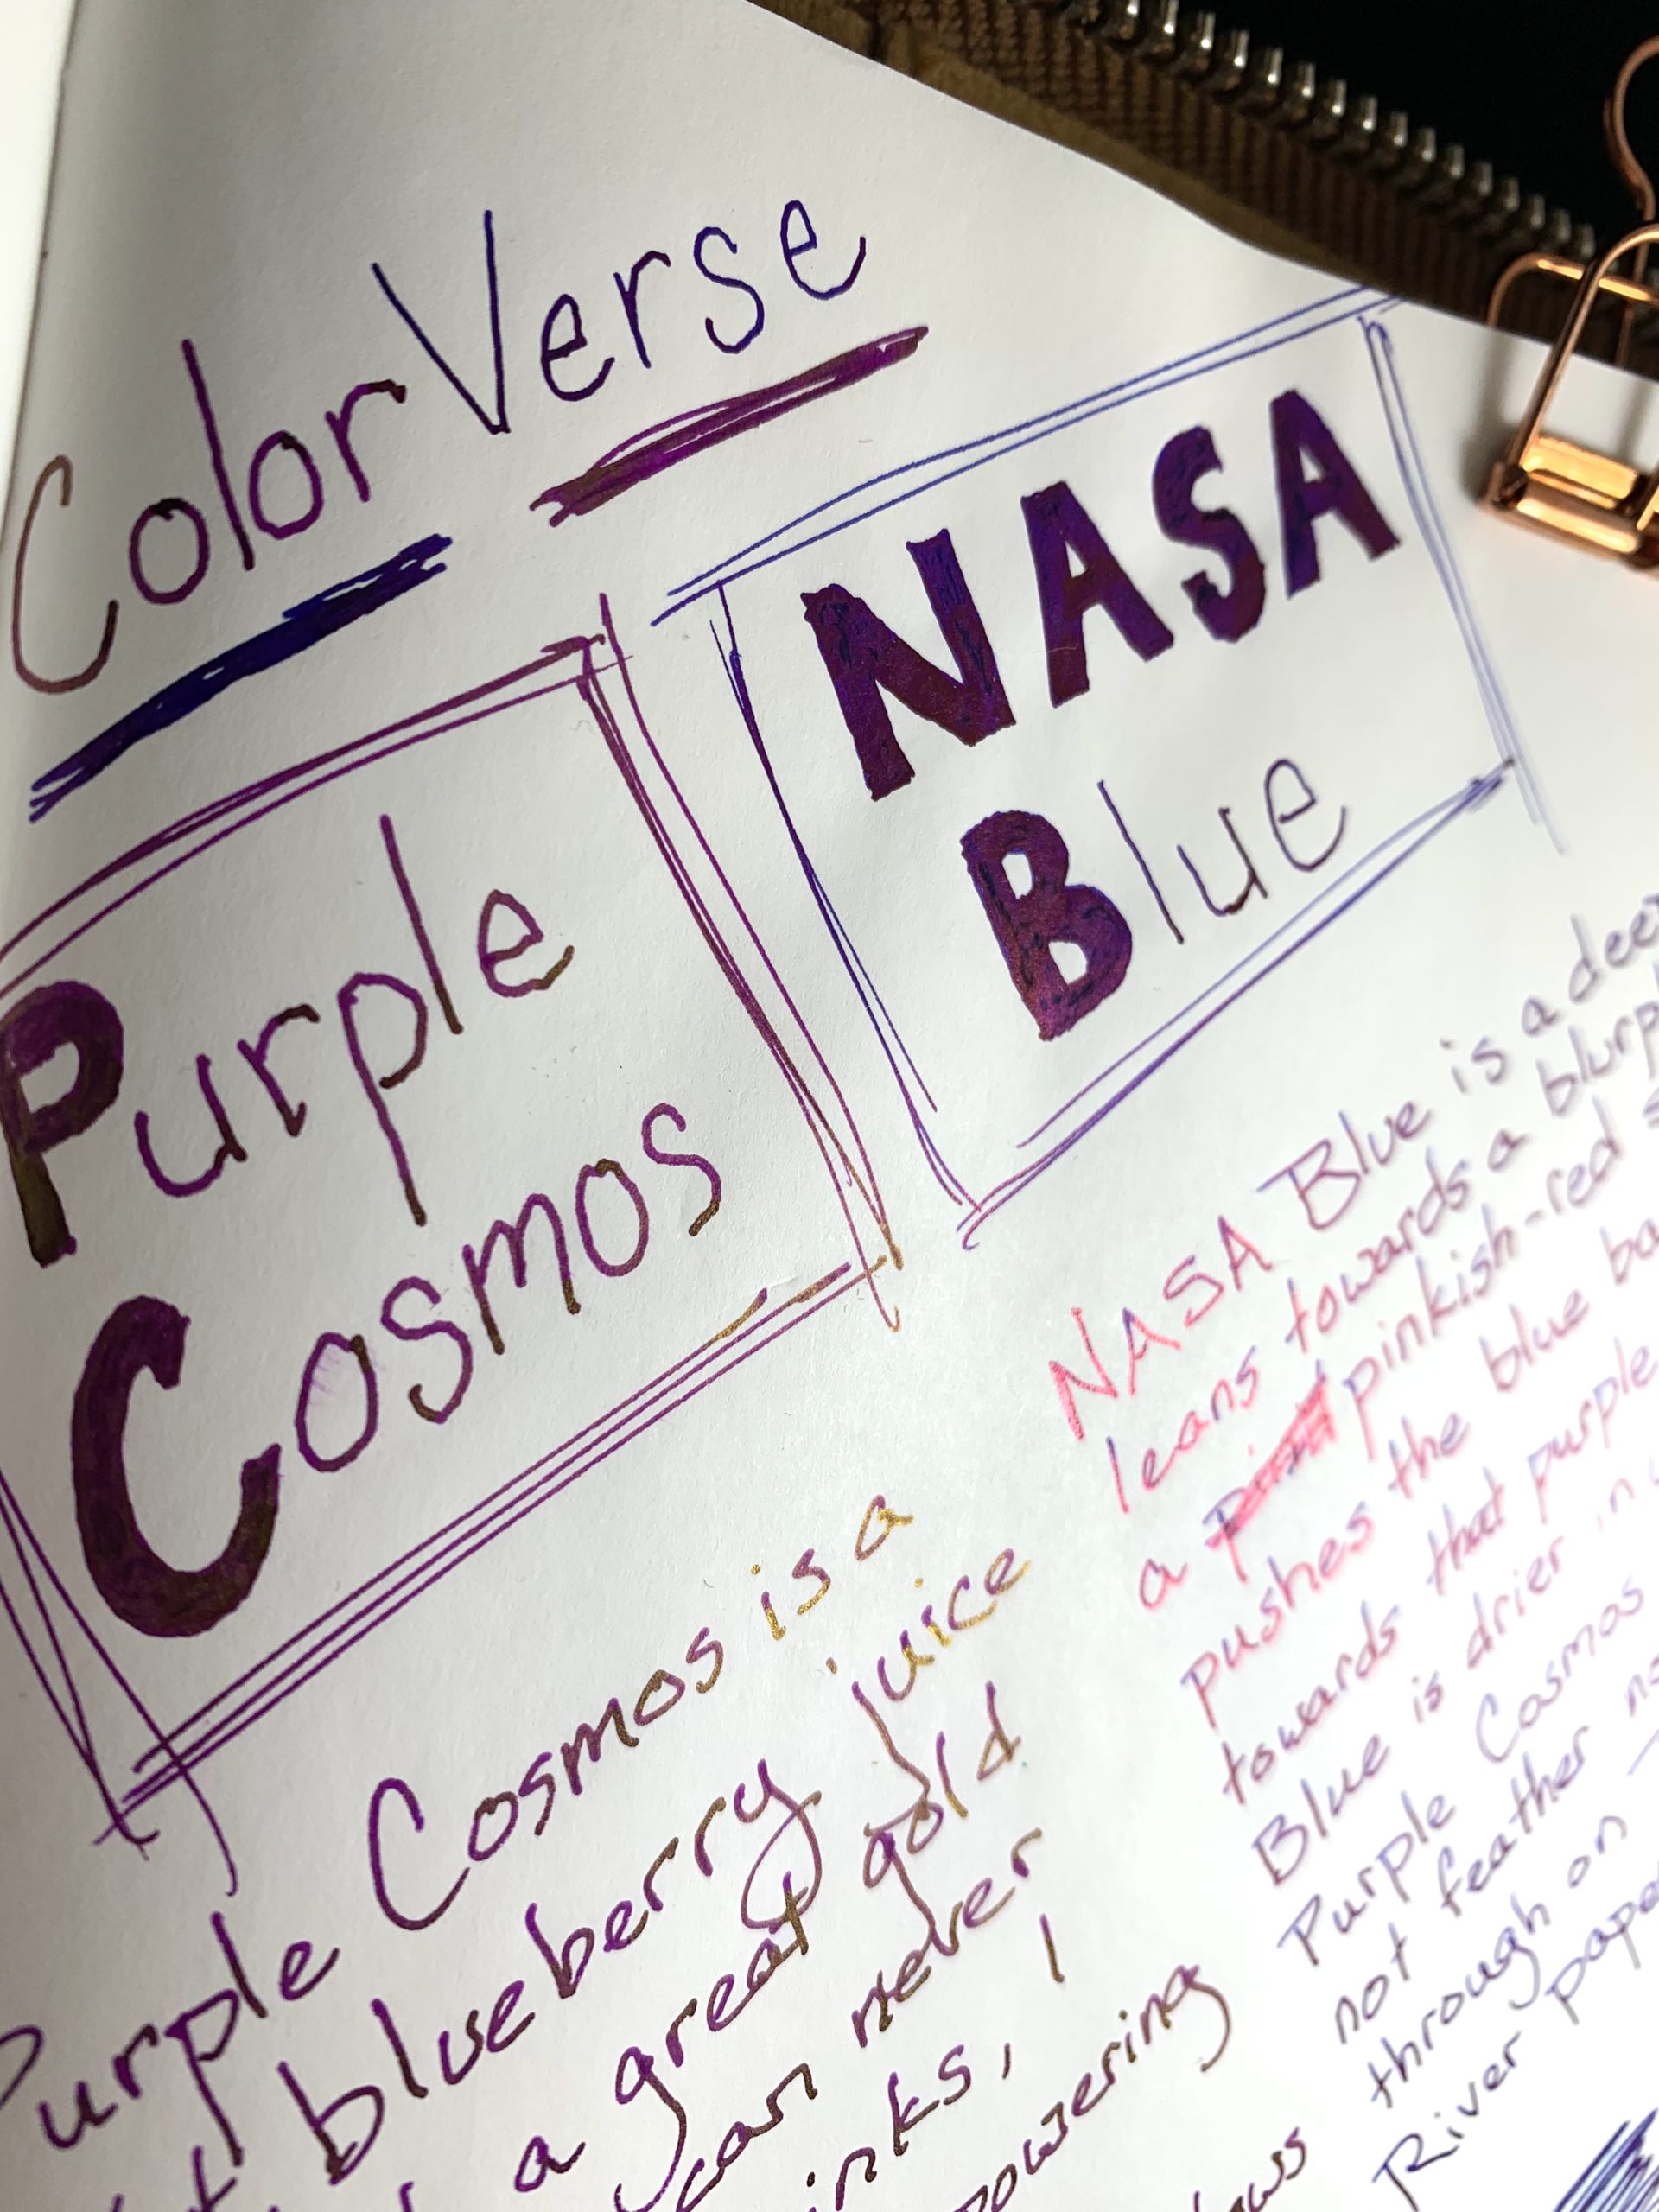 ColorVerse
Purple
Cosmos
NASA
Blue
Purple Cosmos is a
blueberry juice
a great gold
can never
inks, I
powering
NASA Blue is a deep
leans towards a blurp
a pinkish-red s
pushes the blue ba
towards that purple
Blue is drier in
Purple Cosmos
not feather no
through on
River pape